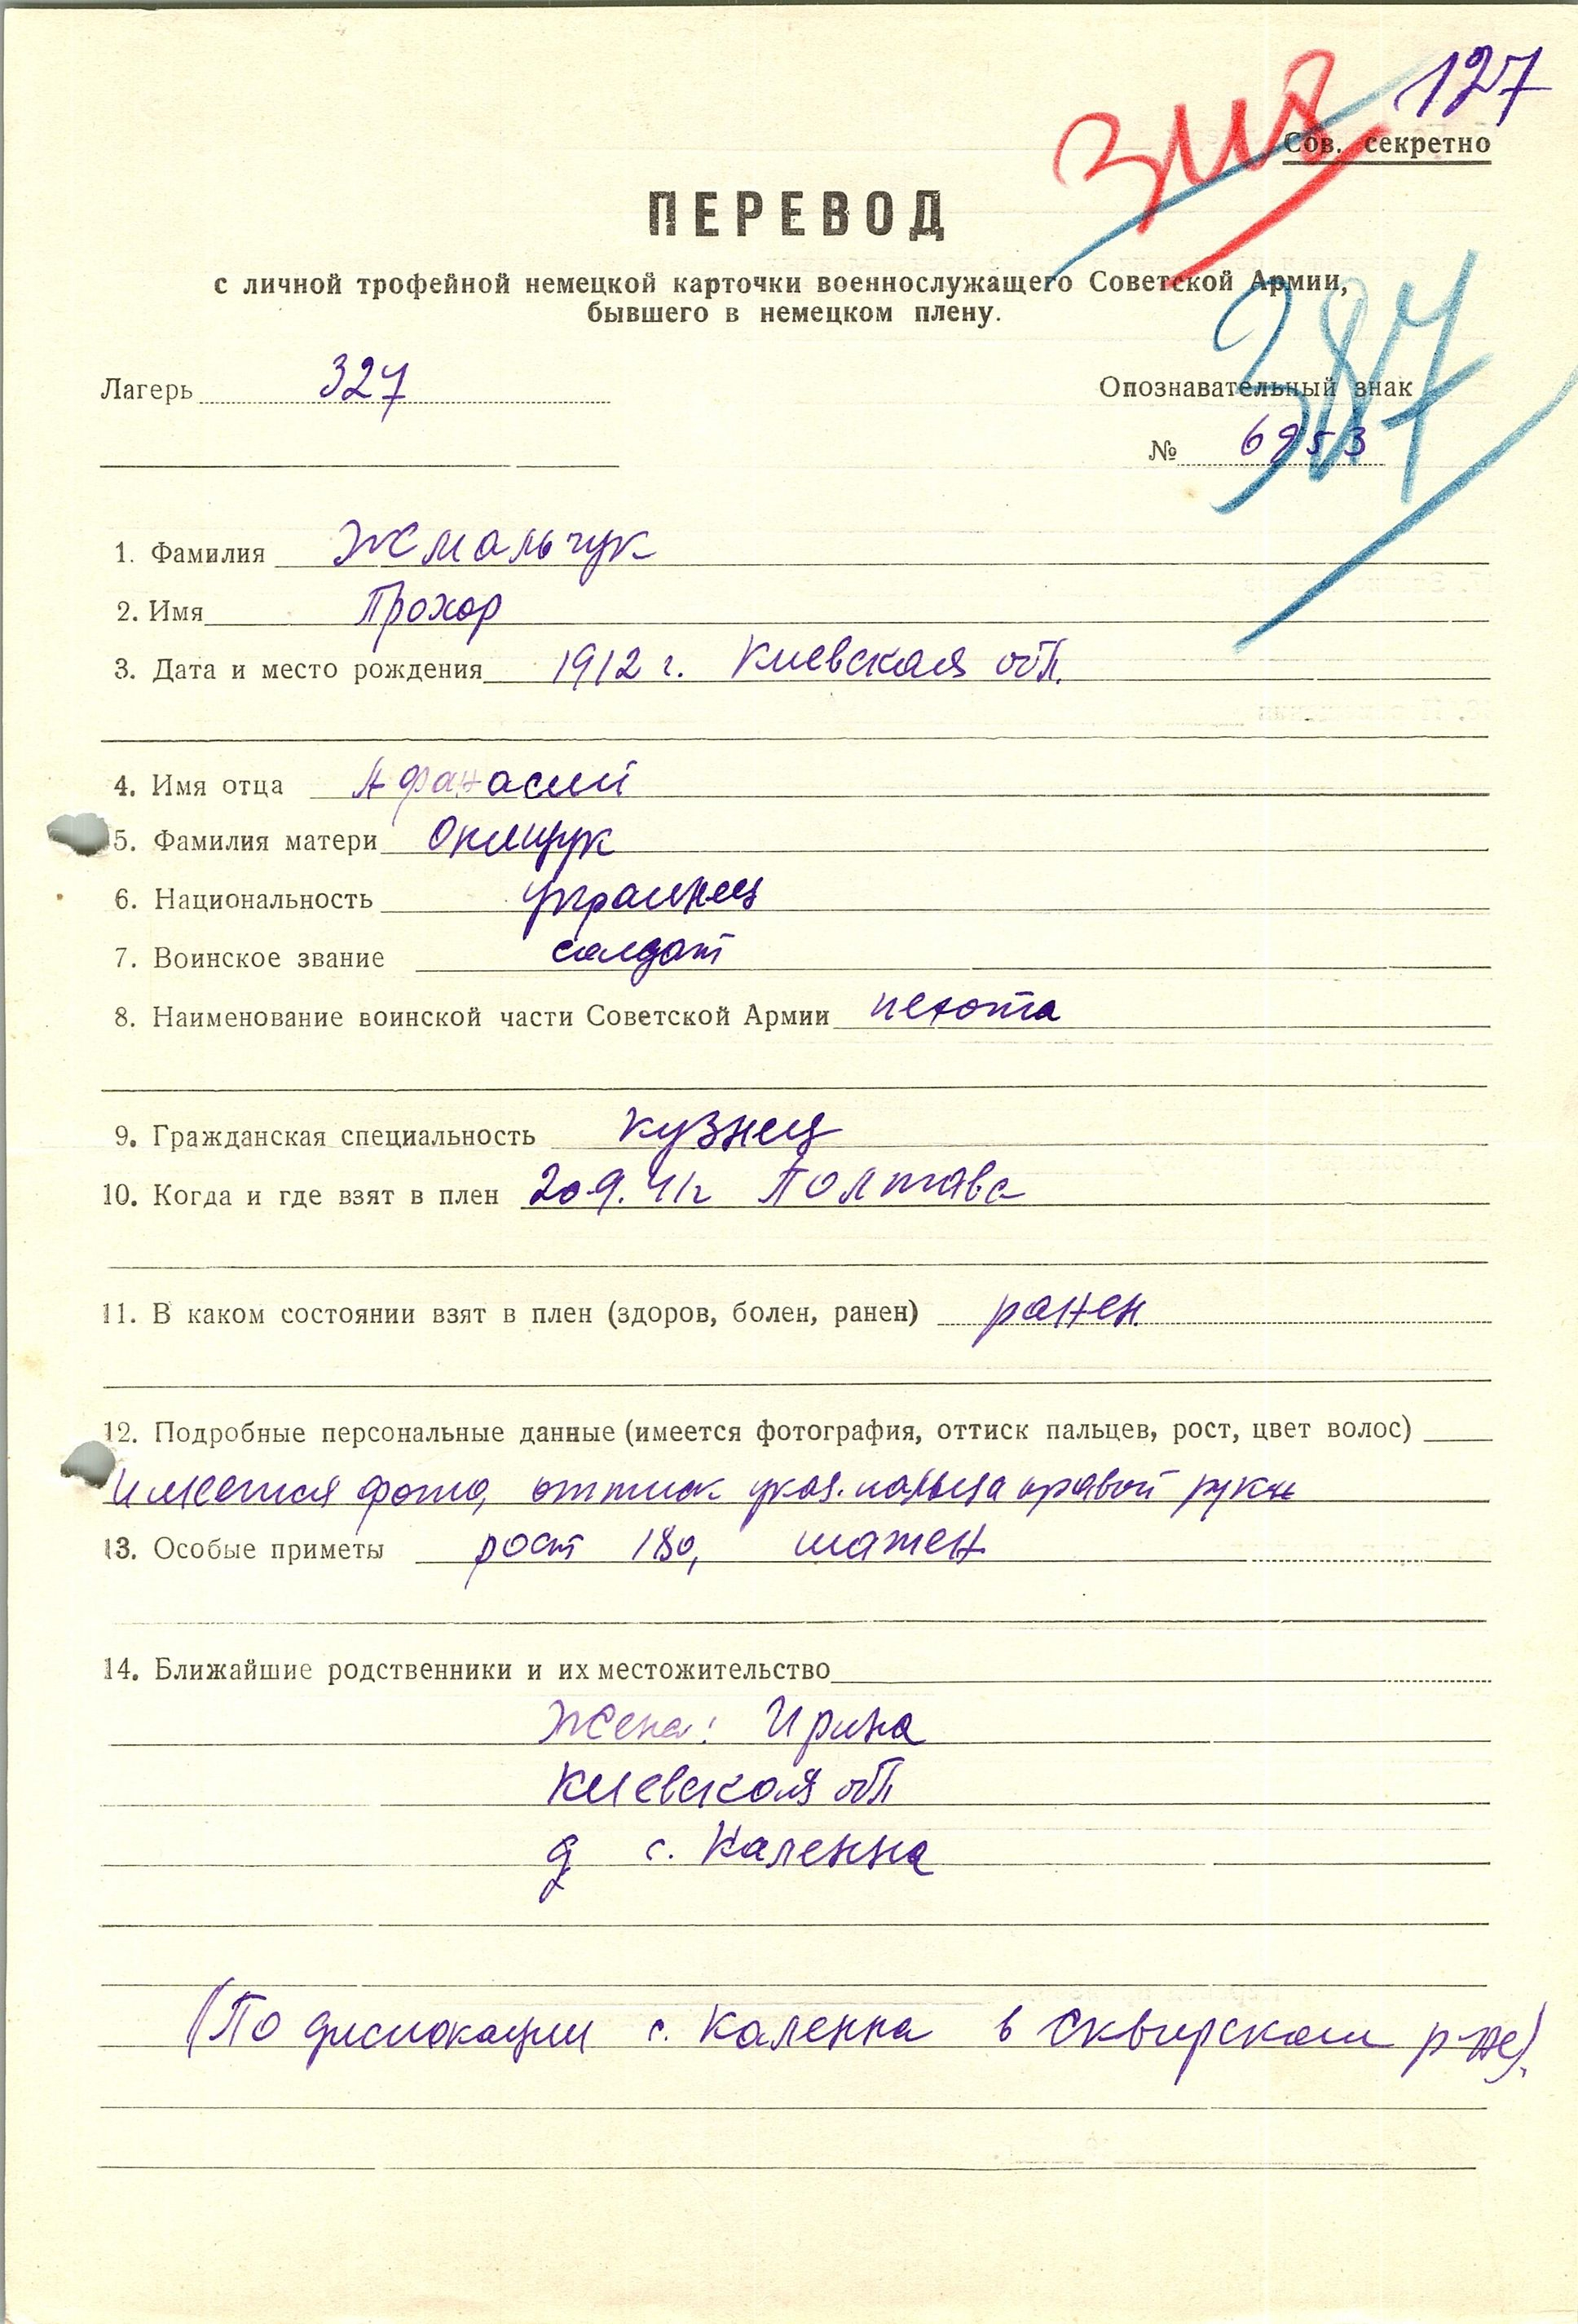 127
Сов. секретно
ПЕРЕВОД
с личной трофейной немецкой карточки военнослужащего Советской Армии,
бывшего в немецком плену.
Лагерь 327
Опознавательный знак
№ 6953
387
1. Фамилия Жмальчук
2. Имя Прохор
3. Дата и место рождения 1912 г. Киевская обл.
4. Имя отца Афанасий
5. Фамилия матери Онищук
6. Национальность украинец
7. Воинское звание солдат
8. Наименование воинской части Советской Армии пехота
9. Гражданская специальность кузнец
10. Когда и где взят в плен 20.9.41г Полтава
11. В каком состоянии взят в плен (здоров, болен, ранен) ранен
12. Подробные персональные данные (имеется фотография, оттиск пальцев, рост, цвет волос)
имеется фото, оттиск указ. пальца правой руки
13. Особые приметы рост 180, шатен
14. Ближайшие родственники и их местожительство
Жена: Ирина
Киевская обл
д с. Каленна
(По дислокации с. Каленна в Сквирском р-не).